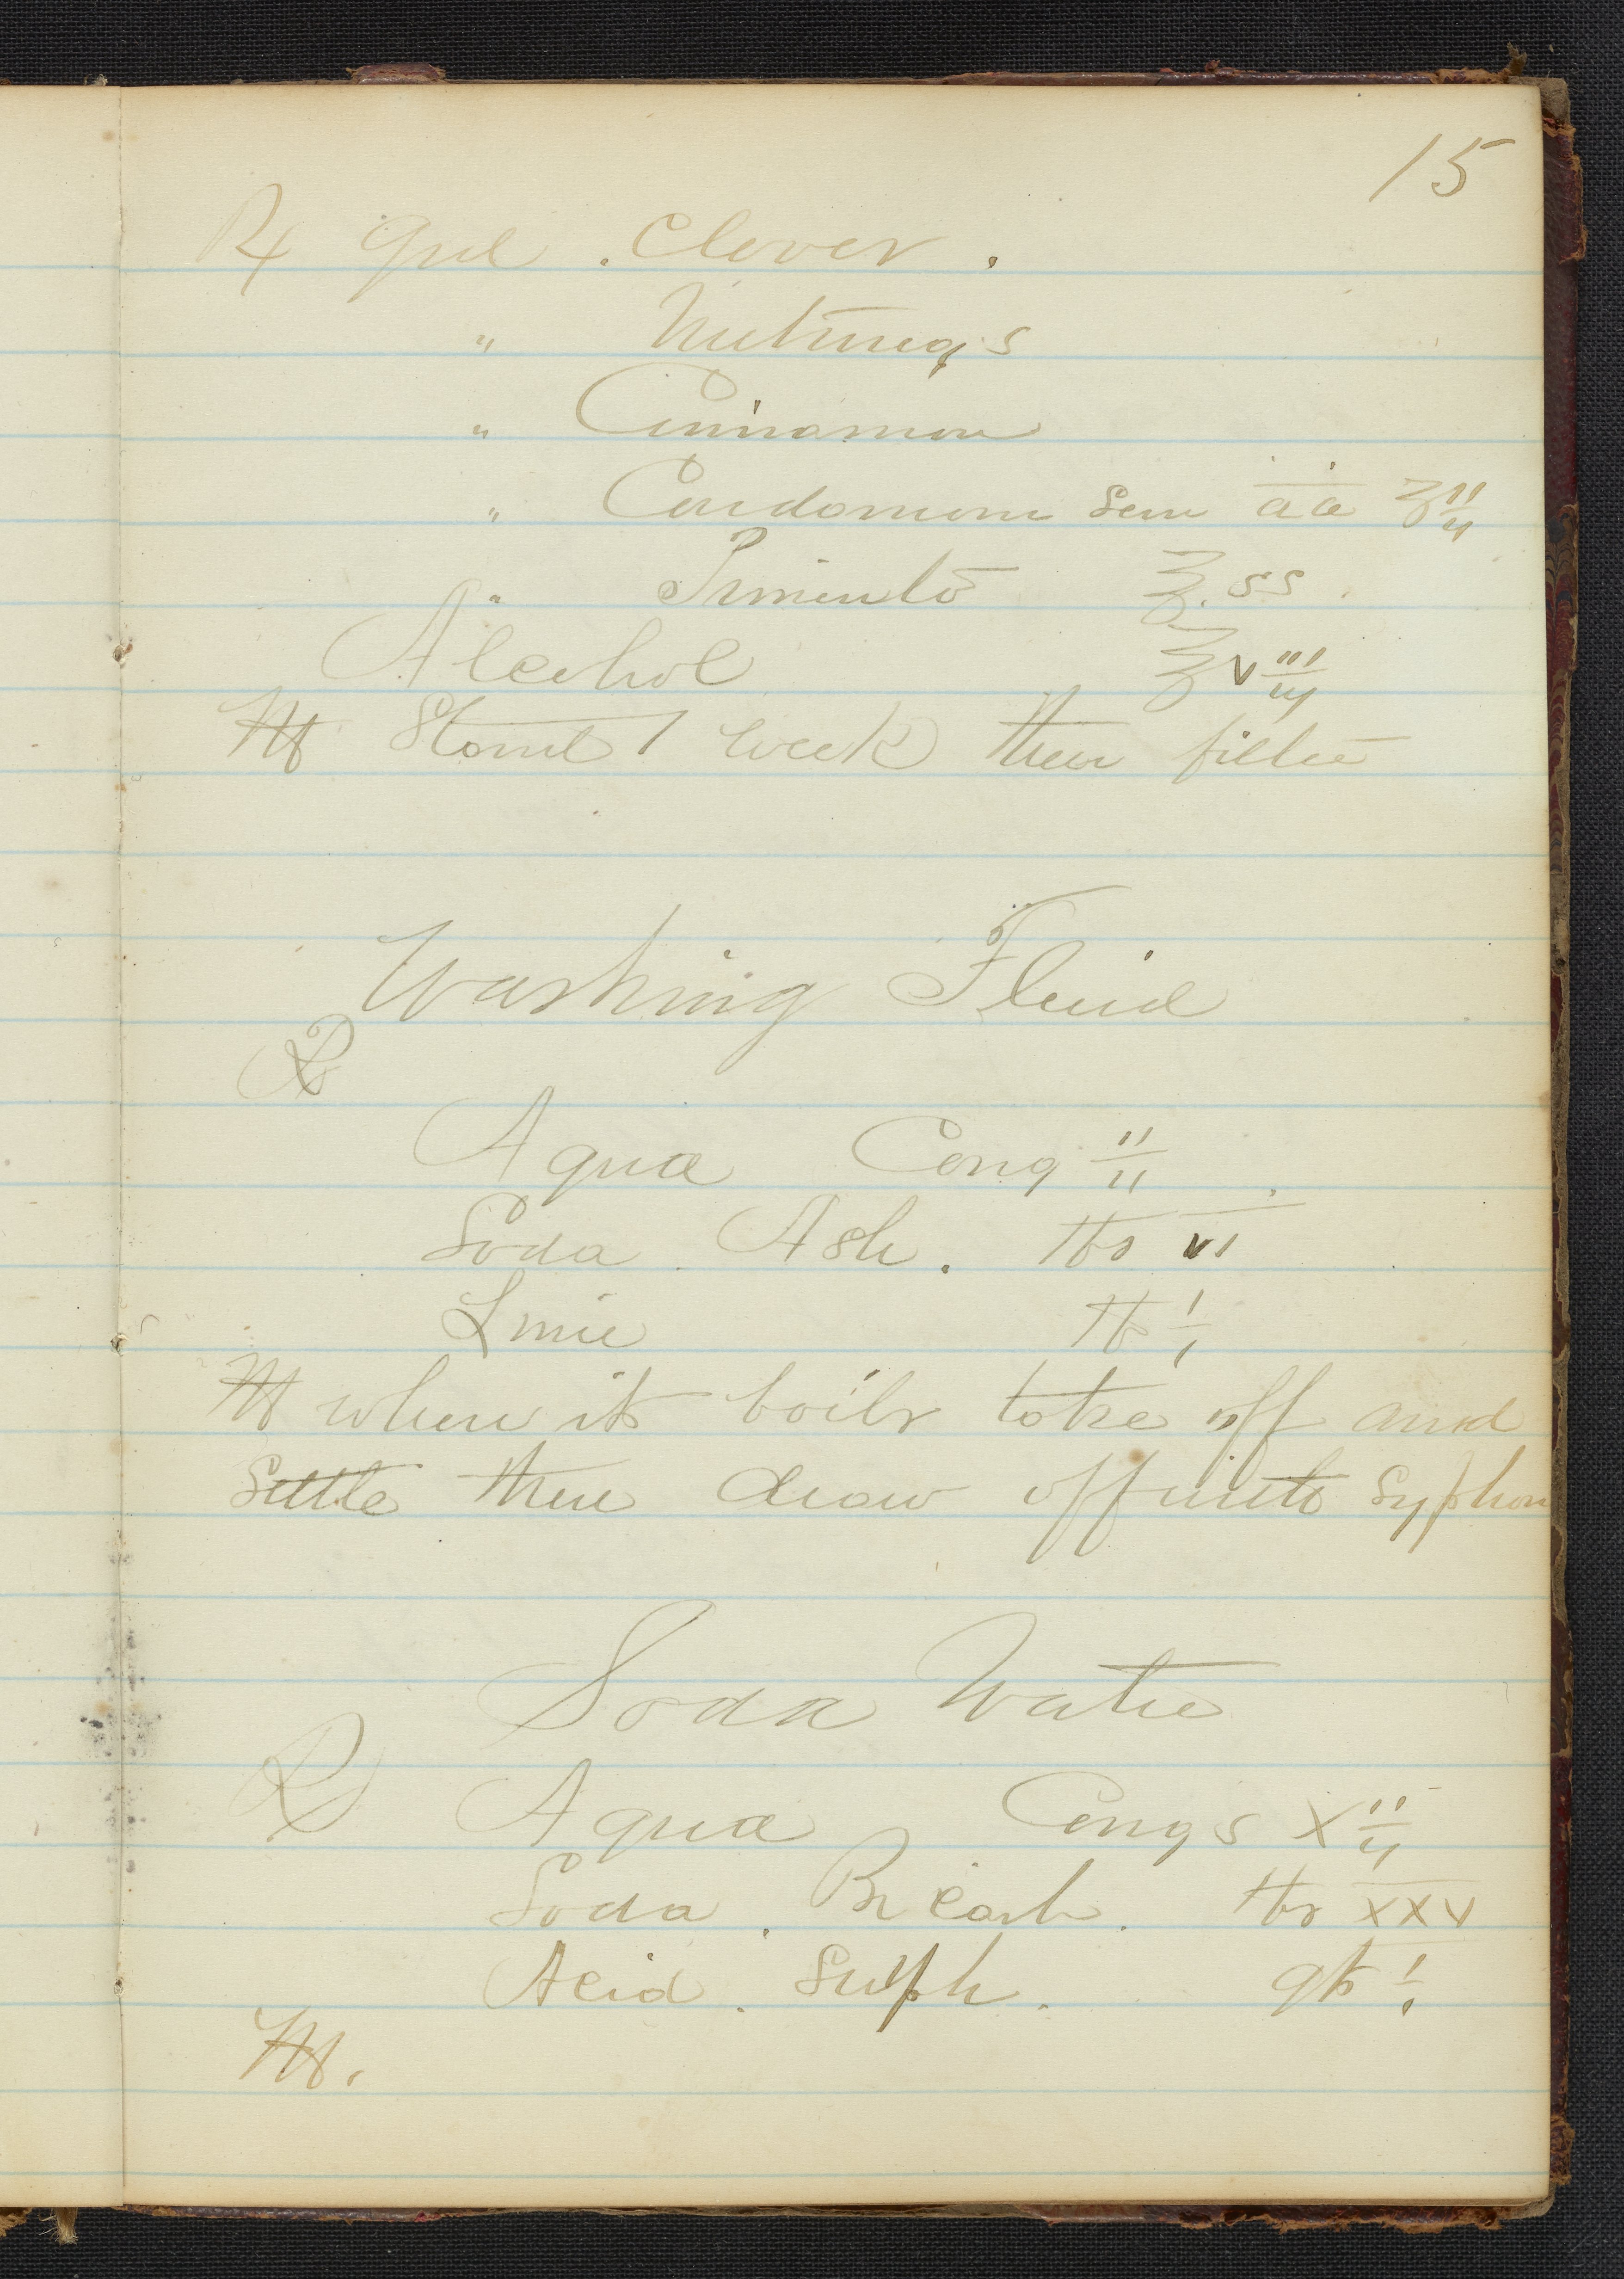 15
℞ Pul. Cloves.
" Nutmegs
" Cinnamon
" Cardamom Sem āā ʒii
" Pimento ℥ss.
Alcohol ℥viii
M Stand 1 week then filter
Washing Fluid
℞
Aqua Cong ii
Soda Ash. ℔s vi
Lime ℔ i
M when it boils take off and
Settle then draw off with Syphon
Soda Water
℞ Aqua Congs xii
Soda. Bi Carb. ℔s xxv
Acid. Sulph. qt i
M.